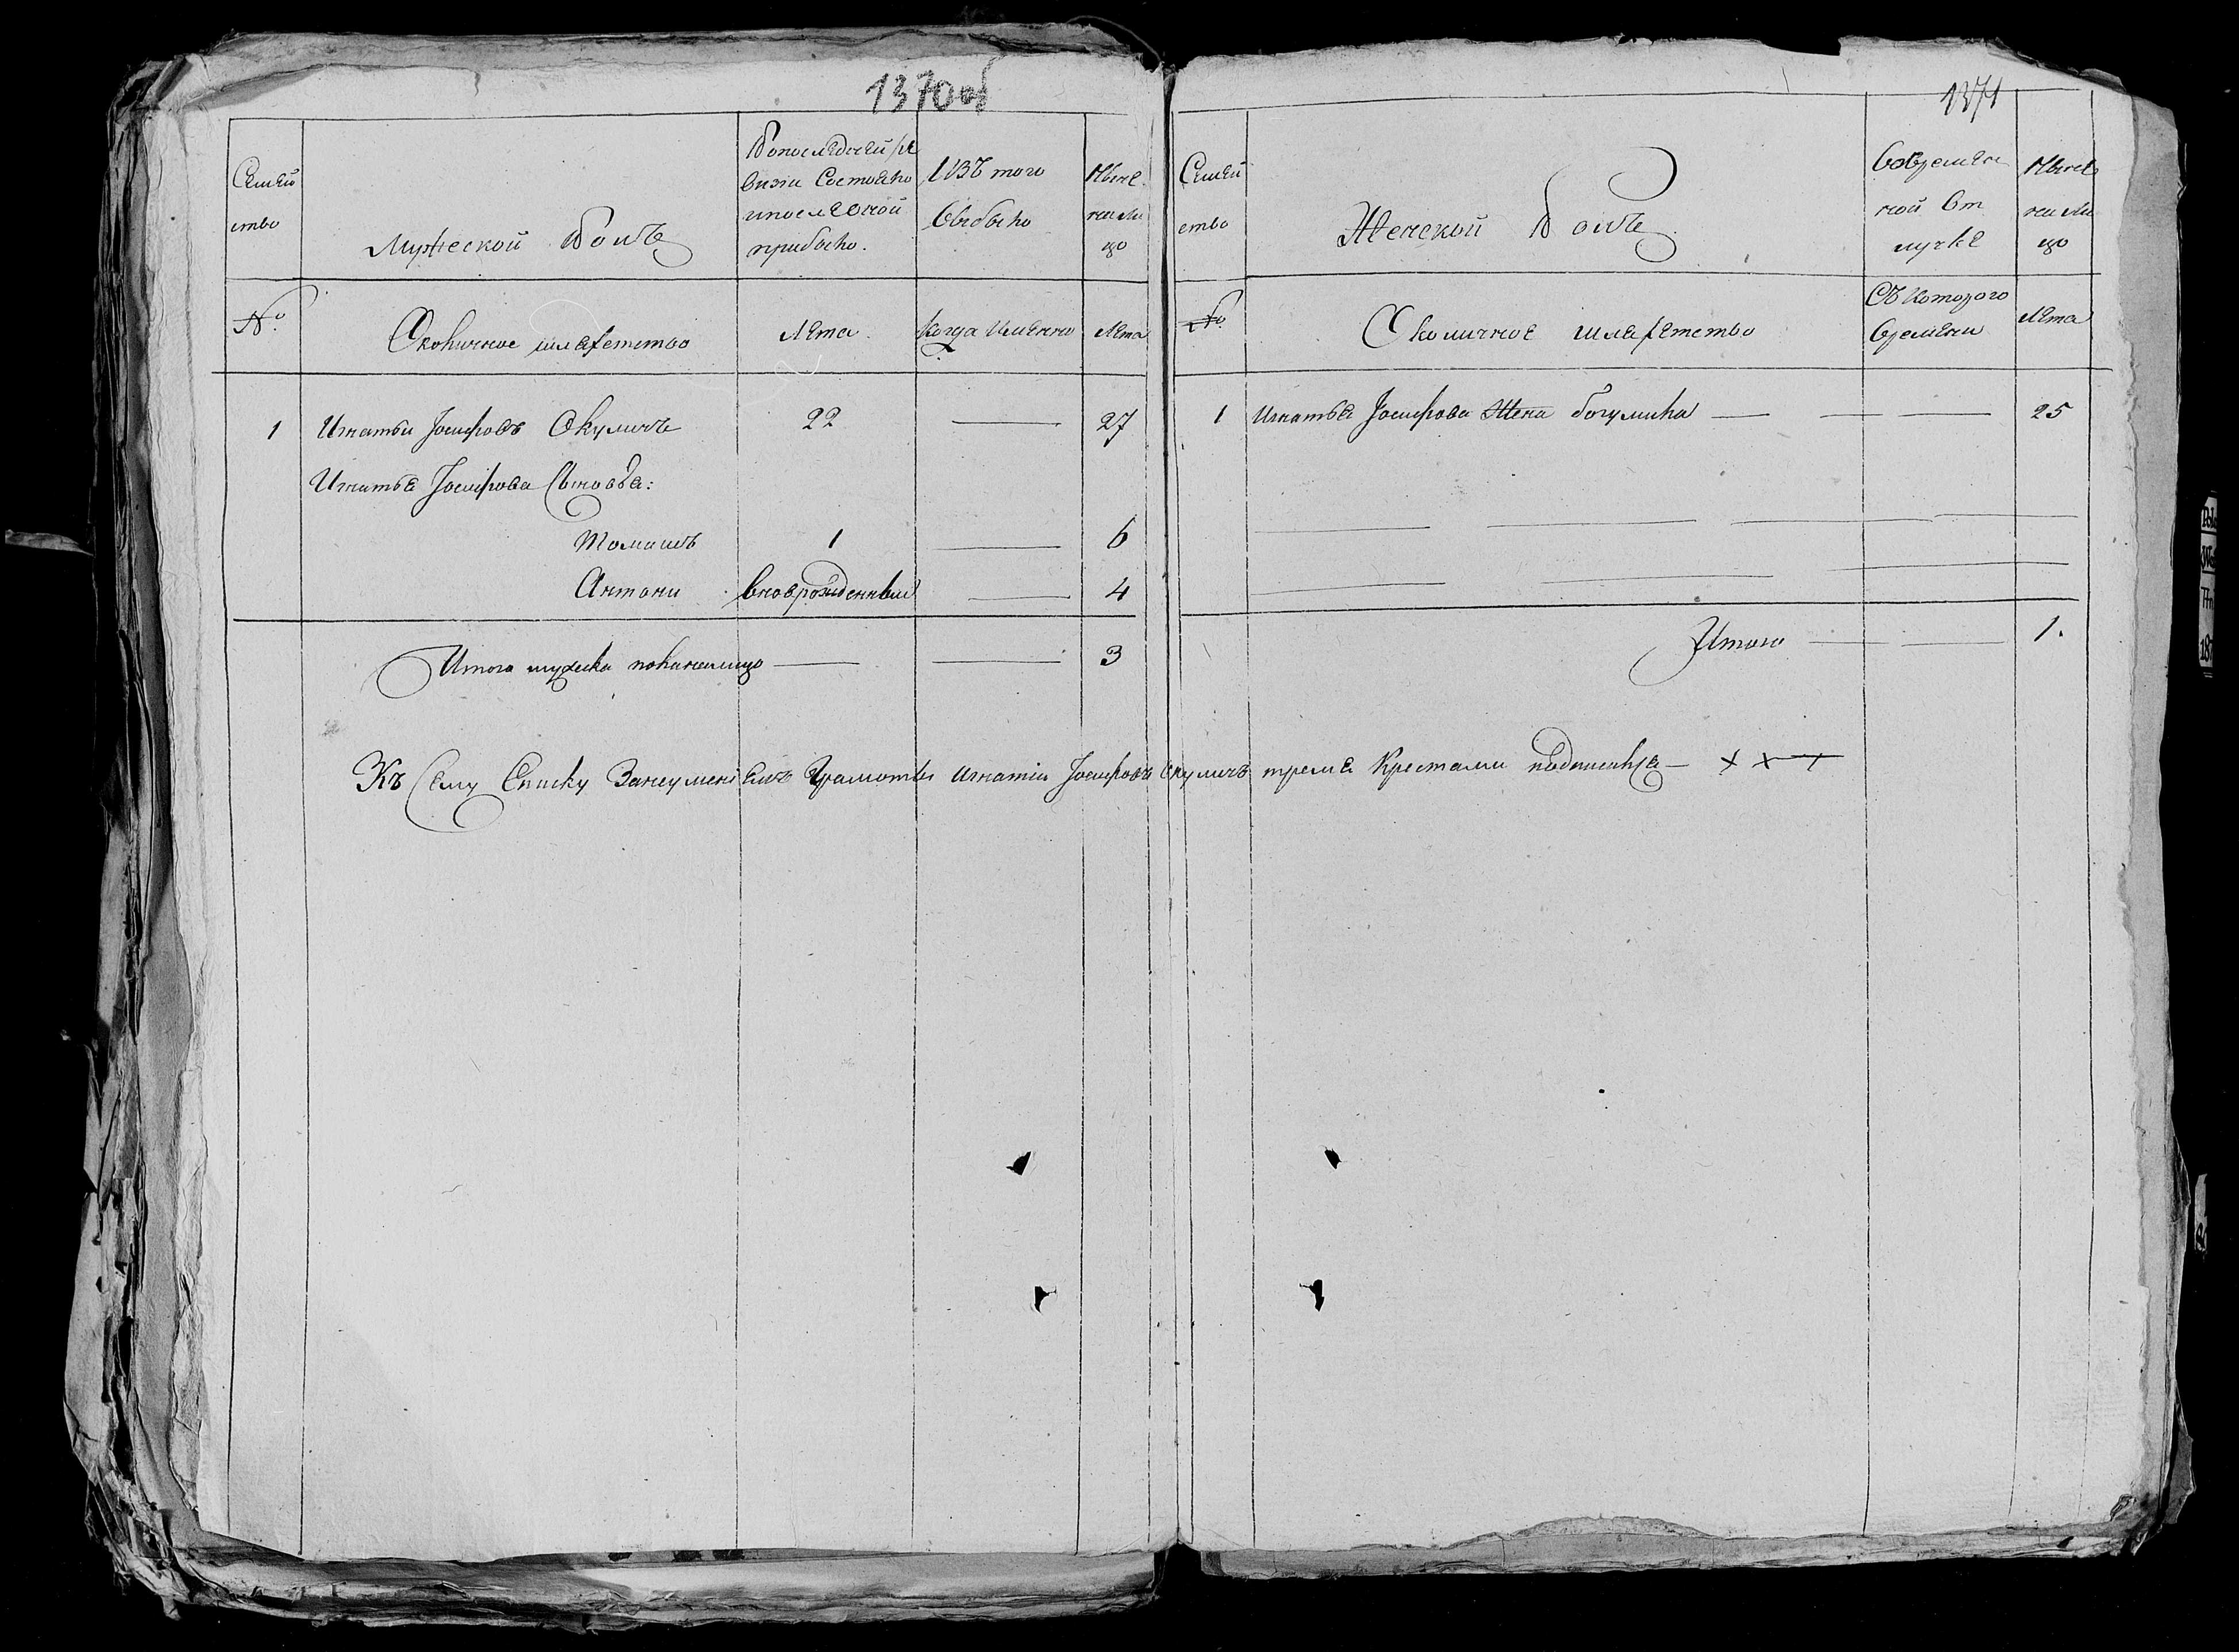 1370об
Семей
ство
Мужеской Полъ
Вопоследней ре
визіи Состояло
ипосле оной
прибыло.
Изъ того
Выбыло
Ныне
нали
цо
№
Околичное шляхетство
Лета
Когда Именно
Лета
1 Игнатьи Јосифовъ Окуличъ 22 — 27
Игнатья Јосифова Сыновья:
Томашъ 1 — 6
Антони вноврожденный — 4
Итого мужеска пола налицо — — 3
1371
Семей
ство
Женской Полъ
Вовремен
ной От
лучке
Ныне
нали
цо
№
Околичное шляхетство
Съ Которого
Времени
Лета
1 Игнатья Јосифова Жена богумила — — — 25
Итого — — 1.
Къ Сему Списку Занеуменіемъ Грамоты Игнатіи Јосифовъ Окуличъ тремя Крестами подписался — × × +